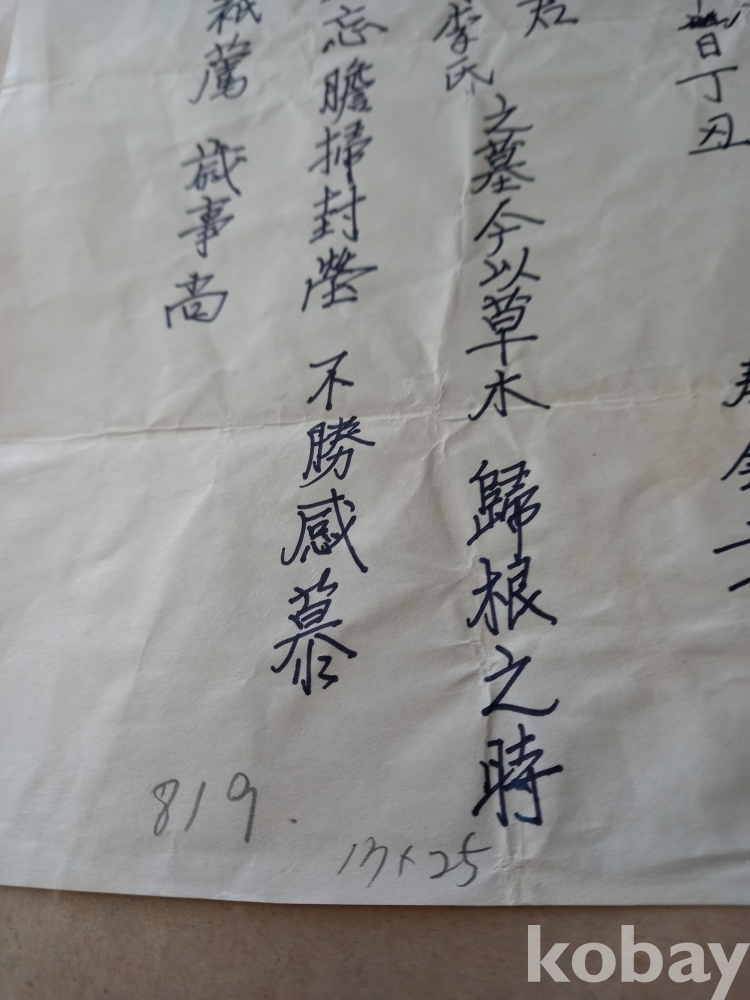 日丁丑
君
李氏
之墓今以草木 歸根之時
忘瞻掃封塋 不勝感慕
祇薦 歲事尚
819.
13×25
kobay